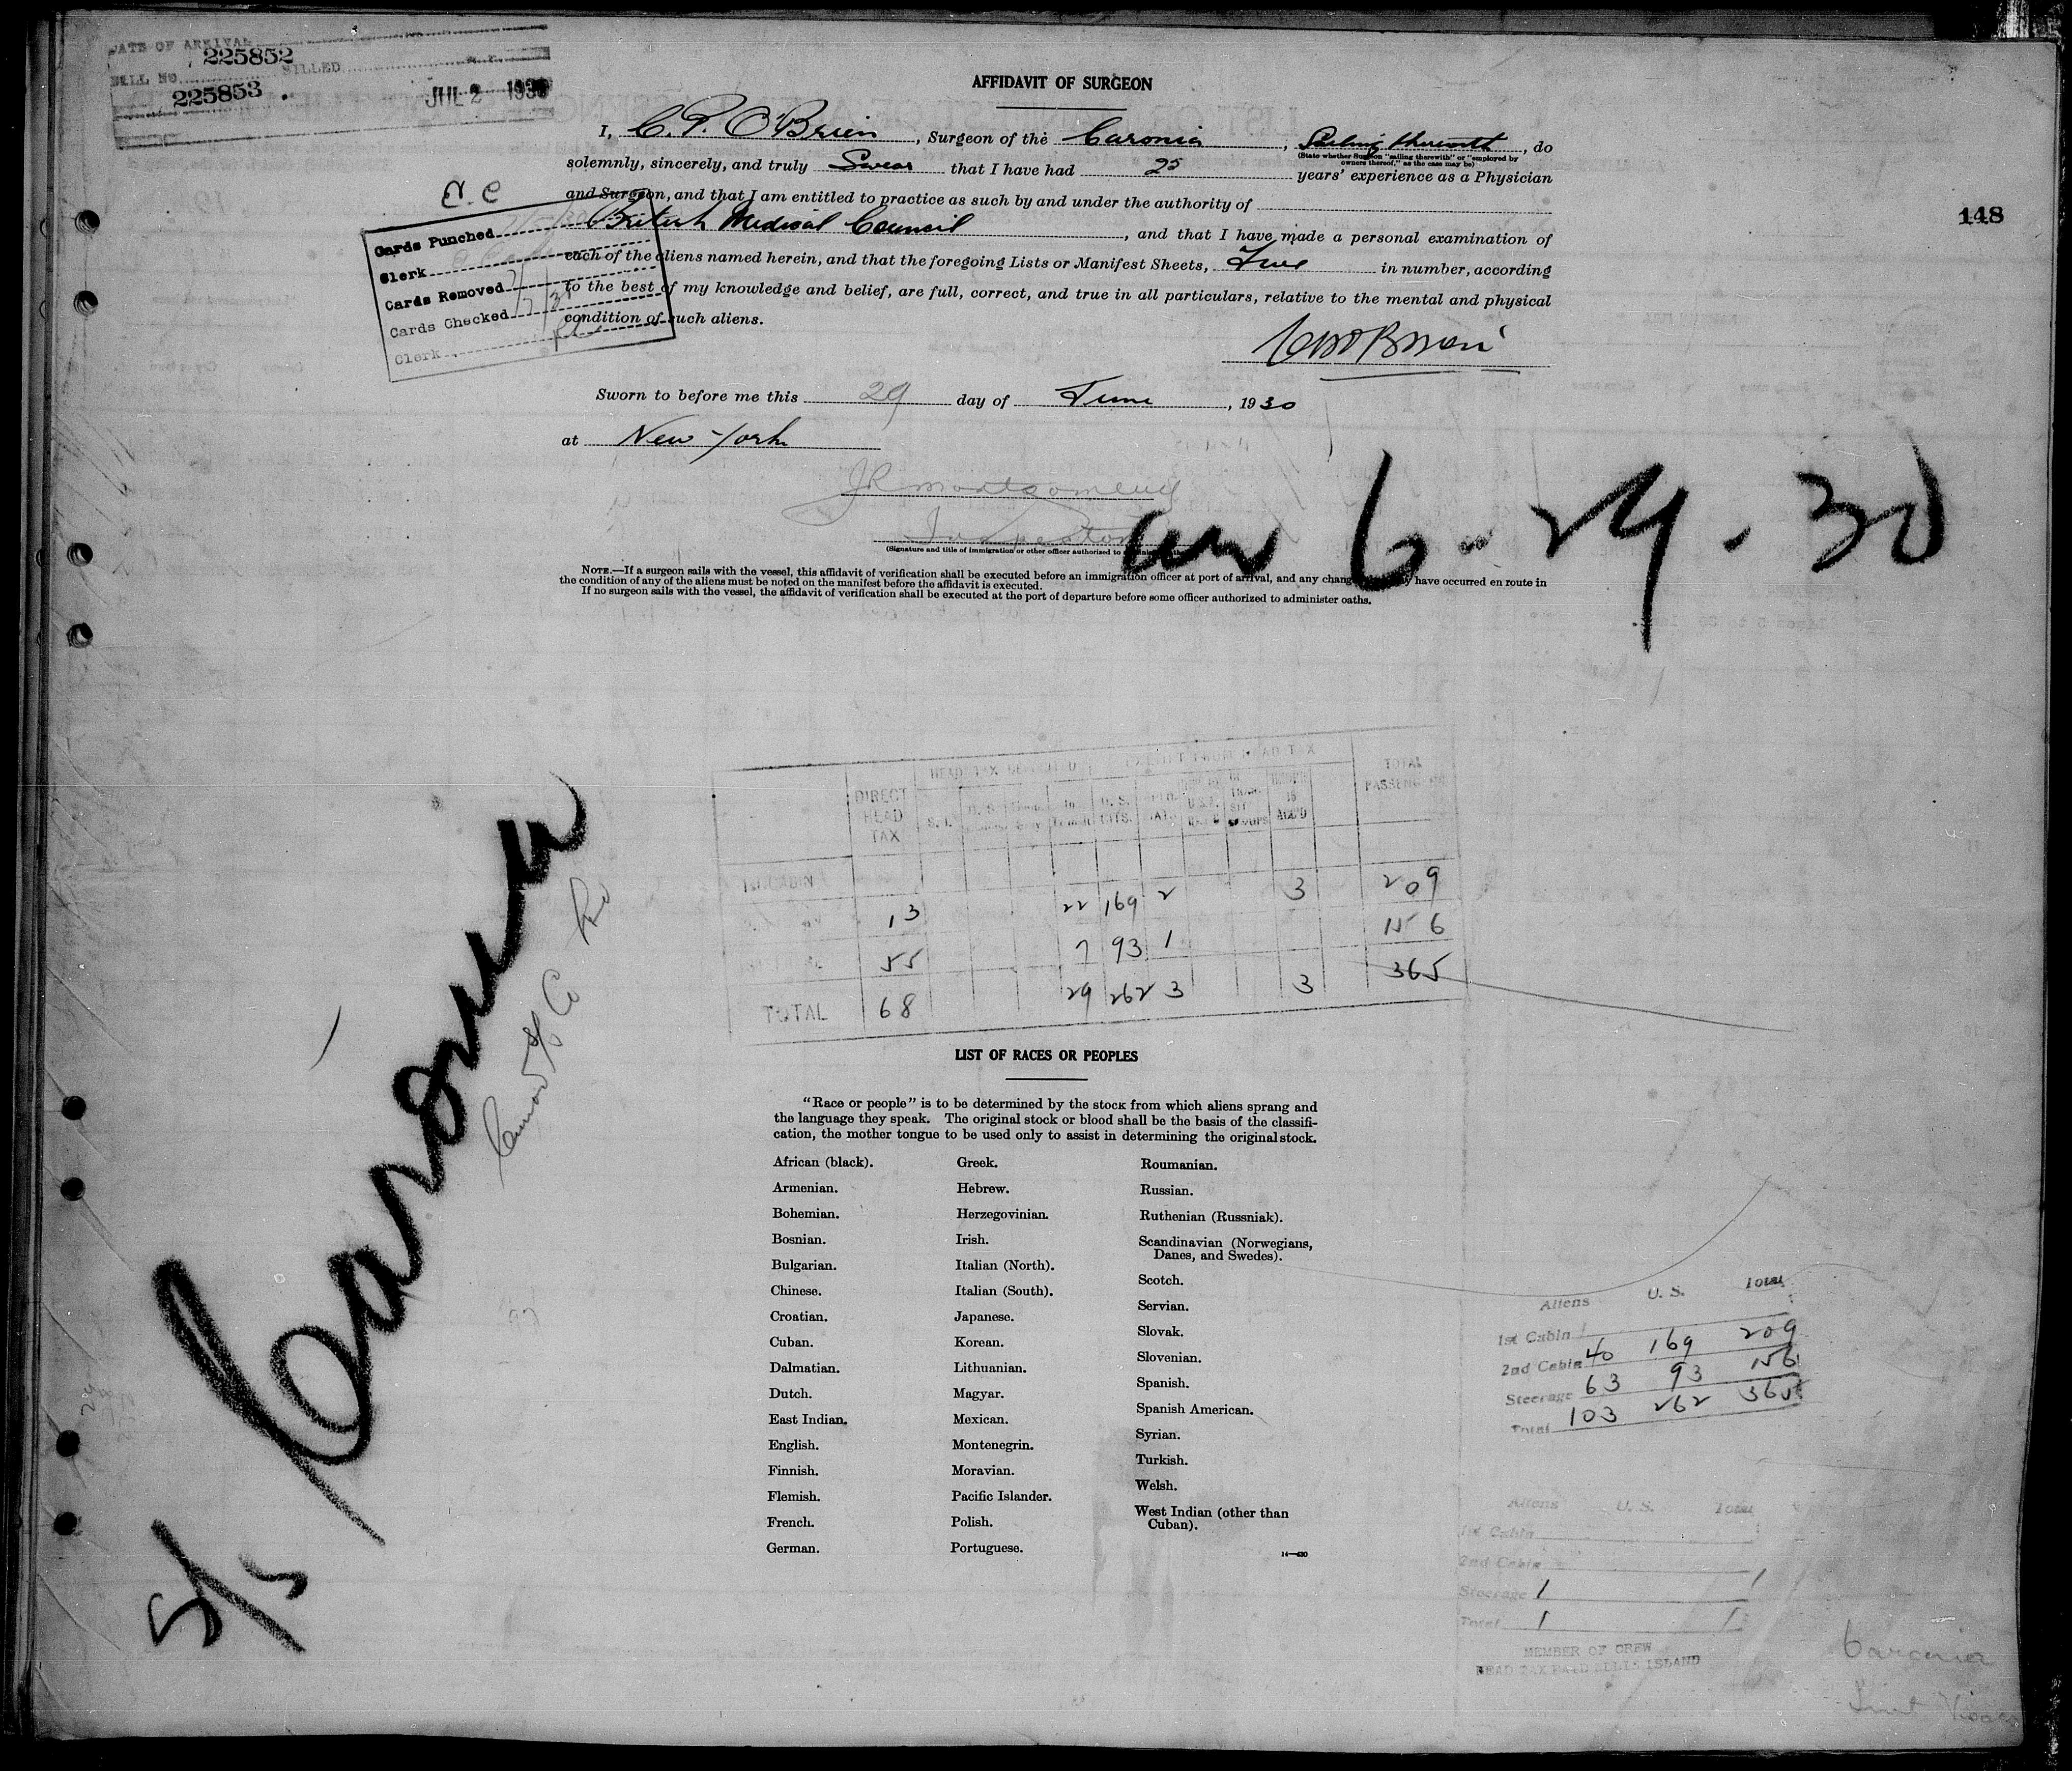 DATE OF ARRIVAL
225852
BILL NO. BILLED
225853 .
JUL 2 1930
148
AFFIDAVIT OF SURGEON
I, C. P. O'Brien, Surgeon of the Caronia, Sailing therewith, do
(State whether Surgeon "sailing therewith" or "employed by
owners thereof," as the case may be)
solemnly, sincerely, and truly Swear that I have had 25 years' experience as a Physician
and Surgeon, and that I am entitled to practice as such by and under the authority of
British Medical Council, and that I have made a personal examination of
each of the aliens named herein, and that the foregoing Lists or Manifest Sheets, in number, according
to the best of my knowledge and belief, are full, correct, and true in all particulars, relative to the mental and physical
condition of such aliens.
Cards Punched
Clerk
Cards Removed
Cards Checked
Clerk
Sworn to before me this 29 day of June, 1930
at New York
J R Montgomery
Inspector
(Signature and title of immigration or other officer authorized to
6-29-30
NOTE.—If a surgeon sails with the vessel, this affidavit of verification shall be executed before an immigration officer at port of arrival, and any chang have occurred en route in
the condition of any of the aliens must be noted on the manifest before the affidavit is executed.
If no surgeon sails with the vessel, the affidavit of verification shall be executed at the port of departure before some officer authorized to administer oaths.
HEAD TAX EXEMPT FROM HEAD TAX
DIRECT HEAD TAX S. I. U. S. CITS. TOTAL PASSENGERS
1st CABIN
13 22 169 2 3 209
55 7 93 1 156
TOTAL 68 29 262 3 3 365
S/S Caronia
Cunard SS Co
LIST OF RACES OR PEOPLES
"Race or people" is to be determined by the stock from which aliens sprang and
the language they speak. The original stock or blood shall be the basis of the classifi-
cation, the mother tongue to be used only to assist in determining the original stock.
African (black).
Armenian.
Bohemian.
Bosnian.
Bulgarian.
Chinese.
Croatian.
Cuban.
Dalmatian.
Dutch.
East Indian.
English.
Finnish.
Flemish.
French.
German.
Greek.
Hebrew.
Herzegovinian.
Irish.
Italian (North).
Italian (South).
Japanese.
Korean.
Lithuanian.
Magyar.
Mexican.
Montenegrin.
Moravian.
Pacific Islander.
Polish.
Portuguese.
Roumanian.
Russian.
Ruthenian (Russniak).
Scandinavian (Norwegians,
Danes, and Swedes).
Scotch.
Servian.
Slovak.
Slovenian.
Spanish.
Spanish American.
Syrian.
Turkish.
Welsh.
West Indian (other than
Cuban).
14—430
Aliens U. S. Total
1st Cabin
2nd Cabin 40 169 209
Steerage 63 93 156
Total 103 262 365
Aliens U. S. Total
1st Cabin
2nd Cabin
Steerage 1 1
Total 1 1
MEMBER OF CREW
HEAD TAX PAID ELLIS ISLAND
Caronia